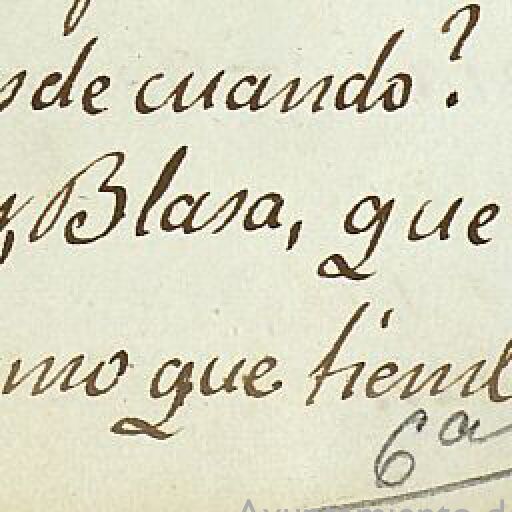 sde cuando?
, Blasa, que
mo que tiembl
6a
Ayuntamiento d